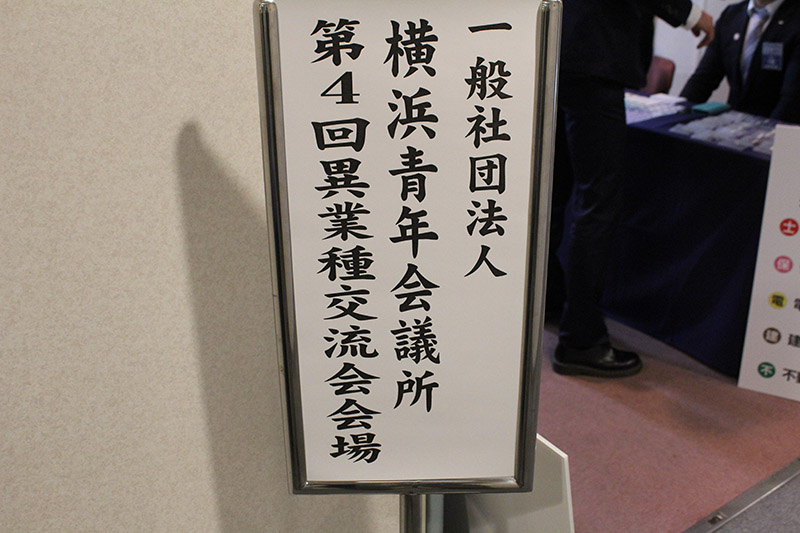 一般社団法人
横浜青年会議所
第4回異業種交流会会場
土
保
電 電
建 建
不 不